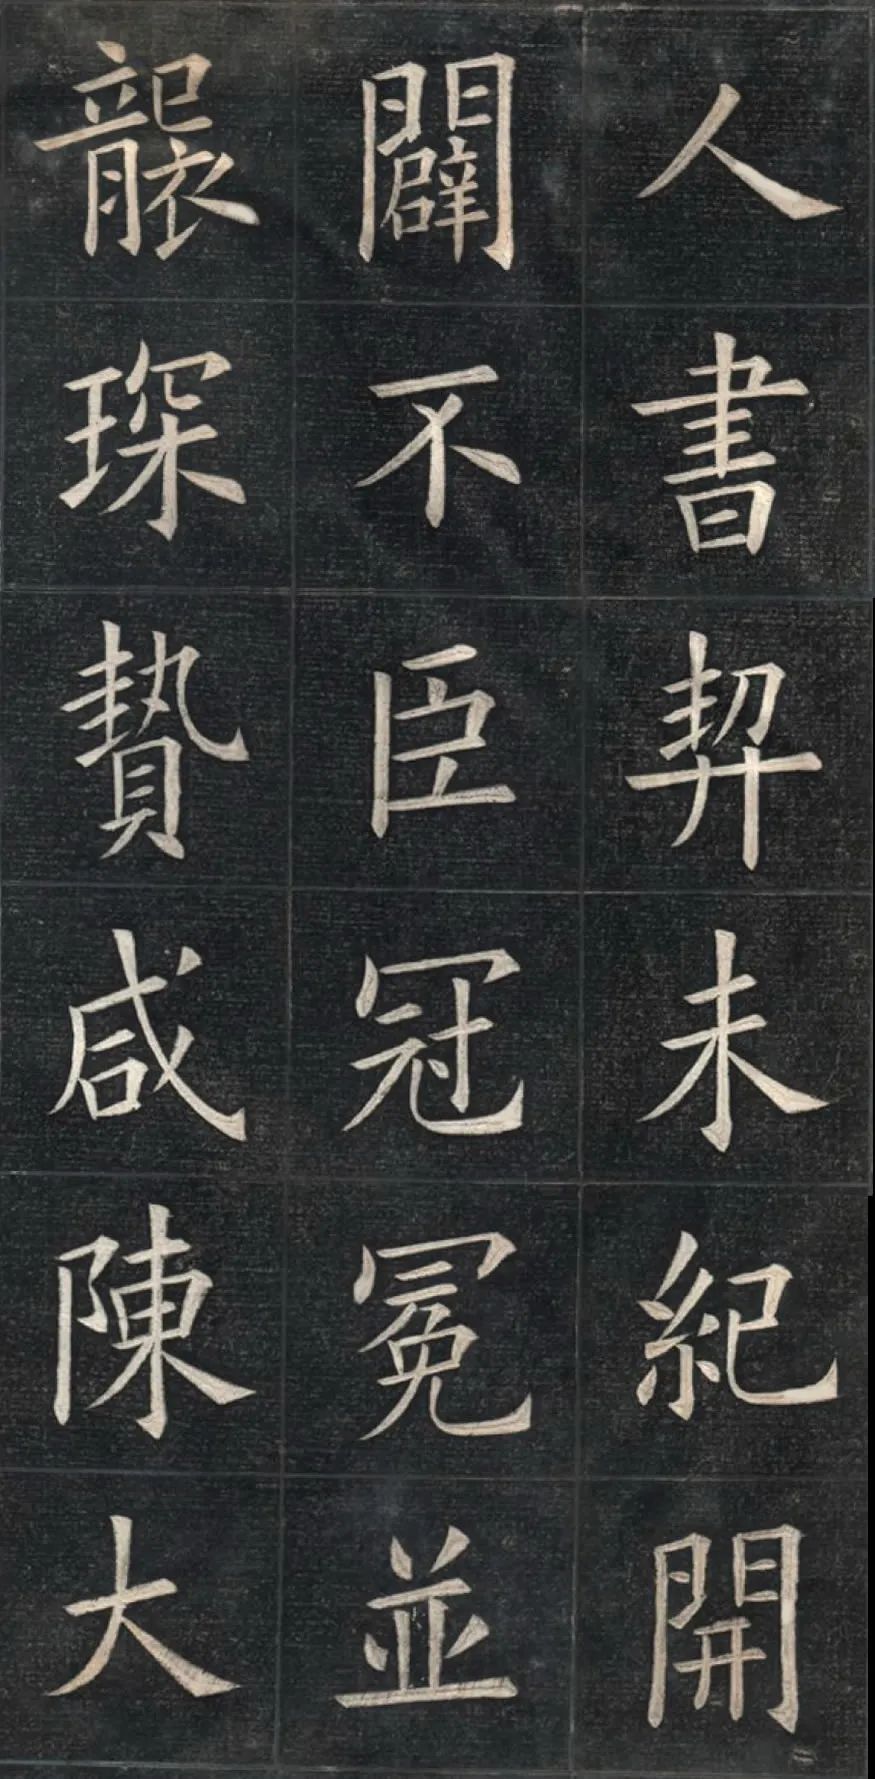 人書契未紀開
闢不臣冠冕並
襲琛贄咸陳大